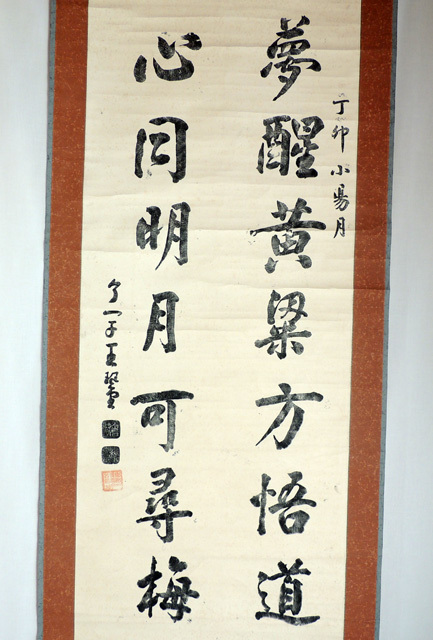 丁卯小陽月
夢醒黃粱方悟道
心同明月可尋梅
王